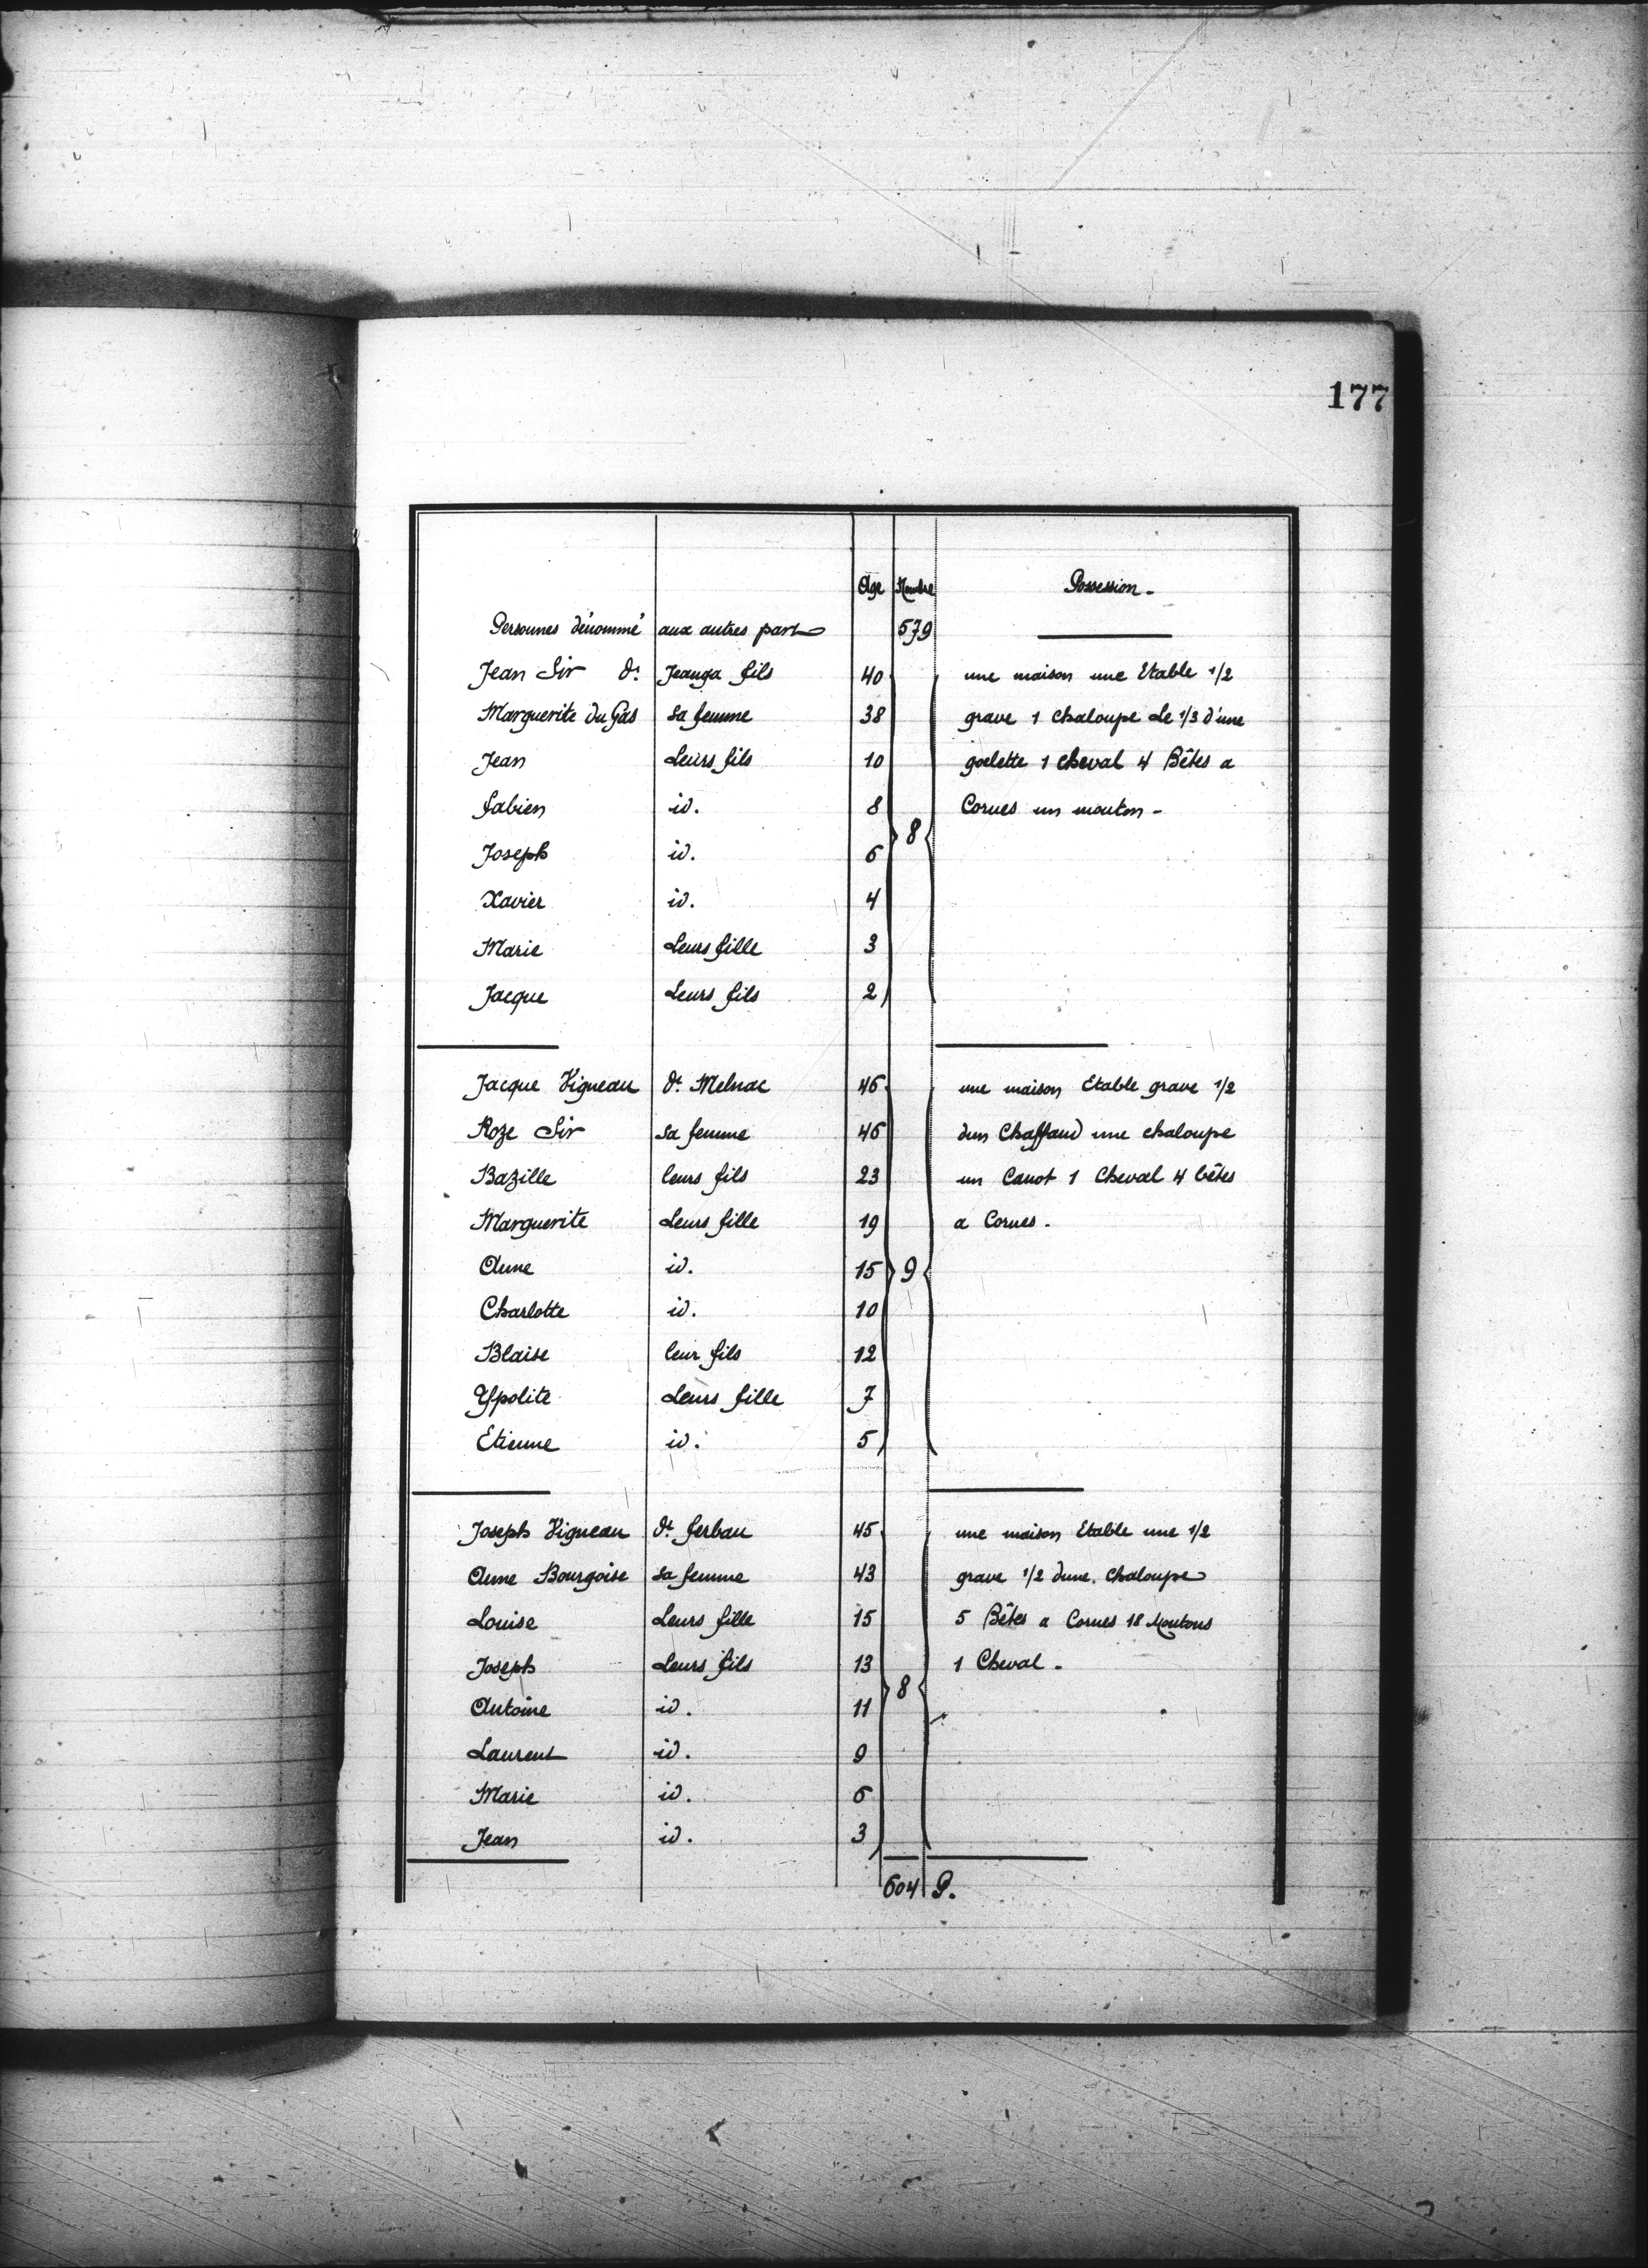 177
Age Nombre Possession -
Personnes dénommé aux autres part 579
Jean Sir dt Jeanga fils 40 une maison une Etable 1/2
Marguerite du Gas sa femme 38 grave 1 chaloupe Le 1/3 d'une
Jean Leurs fils 10 goelette 1 cheval 4 Bêtes a
fabien id. 8 Cornes un mouton -
8
Joseph id. 6
Xavier id. 4
Marie Leurs fille 3
Jacque Leurs fils 2
Jacque Vigneau dt Melnac 46 une maison Etable grave 1/2
Roze Sir sa femme 46 dun Chaffaud une chaloupe
Bazille leurs fils 23 un Canot 1 Cheval 4 bêtes
Marguerite Leurs fille 19 a Cornes .
Anne id. 15 9
Charlotte id. 10
Blaise leur fils 12
Ypolite Leurs fille 7
Etienne id. 5
Joseph Vigneau dt ferbau 45 une maison Etable une 1/2
Anne Bourgoise sa femme 43 grave 1/2 dune chaloupe
Louise Leurs fille 15 5 Bêtes a Cornes 18 Moutons
Joseph Leurs fils 13 1 Cheval .
8
Antoine id. 11
Laurent id. 9
Marie id. 6
Jean id. 3
604 P.